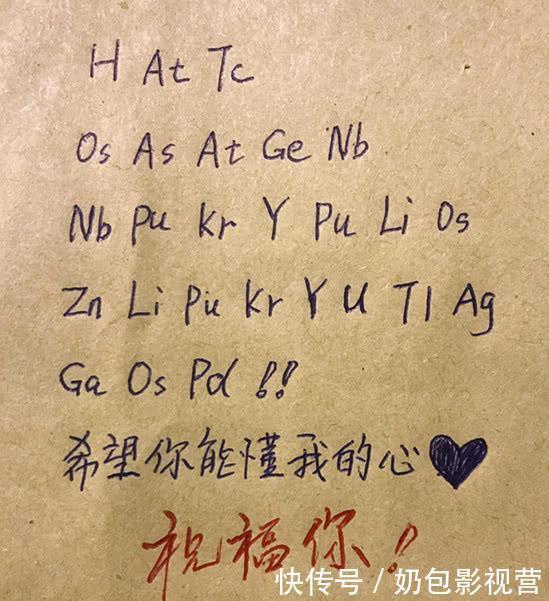 H At Tc
Os As At Ge Nb
Nb Pu Kr Y Pu Li Os
Zn Li Pu Kr Y U Tl Ag
Ga Os Pd !!
希望你能懂我的心
祝福你!
快传号 / 奶包影视营